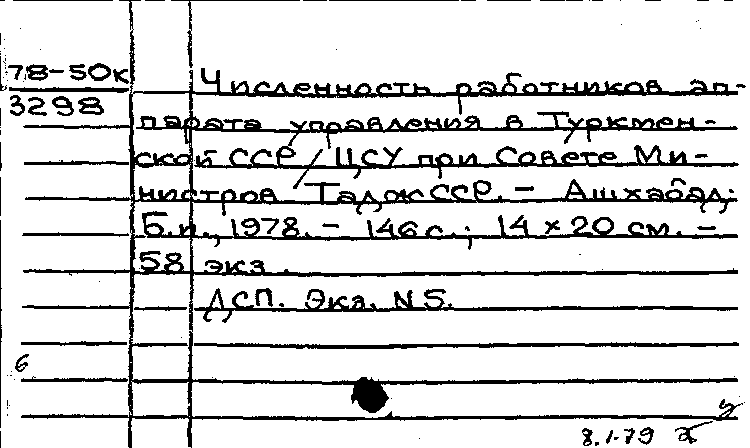 78-50к
3298
Численность работников ап-
парата управления в Туркмен-
ской ССР / ЦСУ при Совете Ми-
нистров ТаджССР. - Ашхабад:
Б.и., 1978. - 146 с.; 14 × 20 см. -
58 экз.
ДСП. Экз. N 5.
6
8.1.79